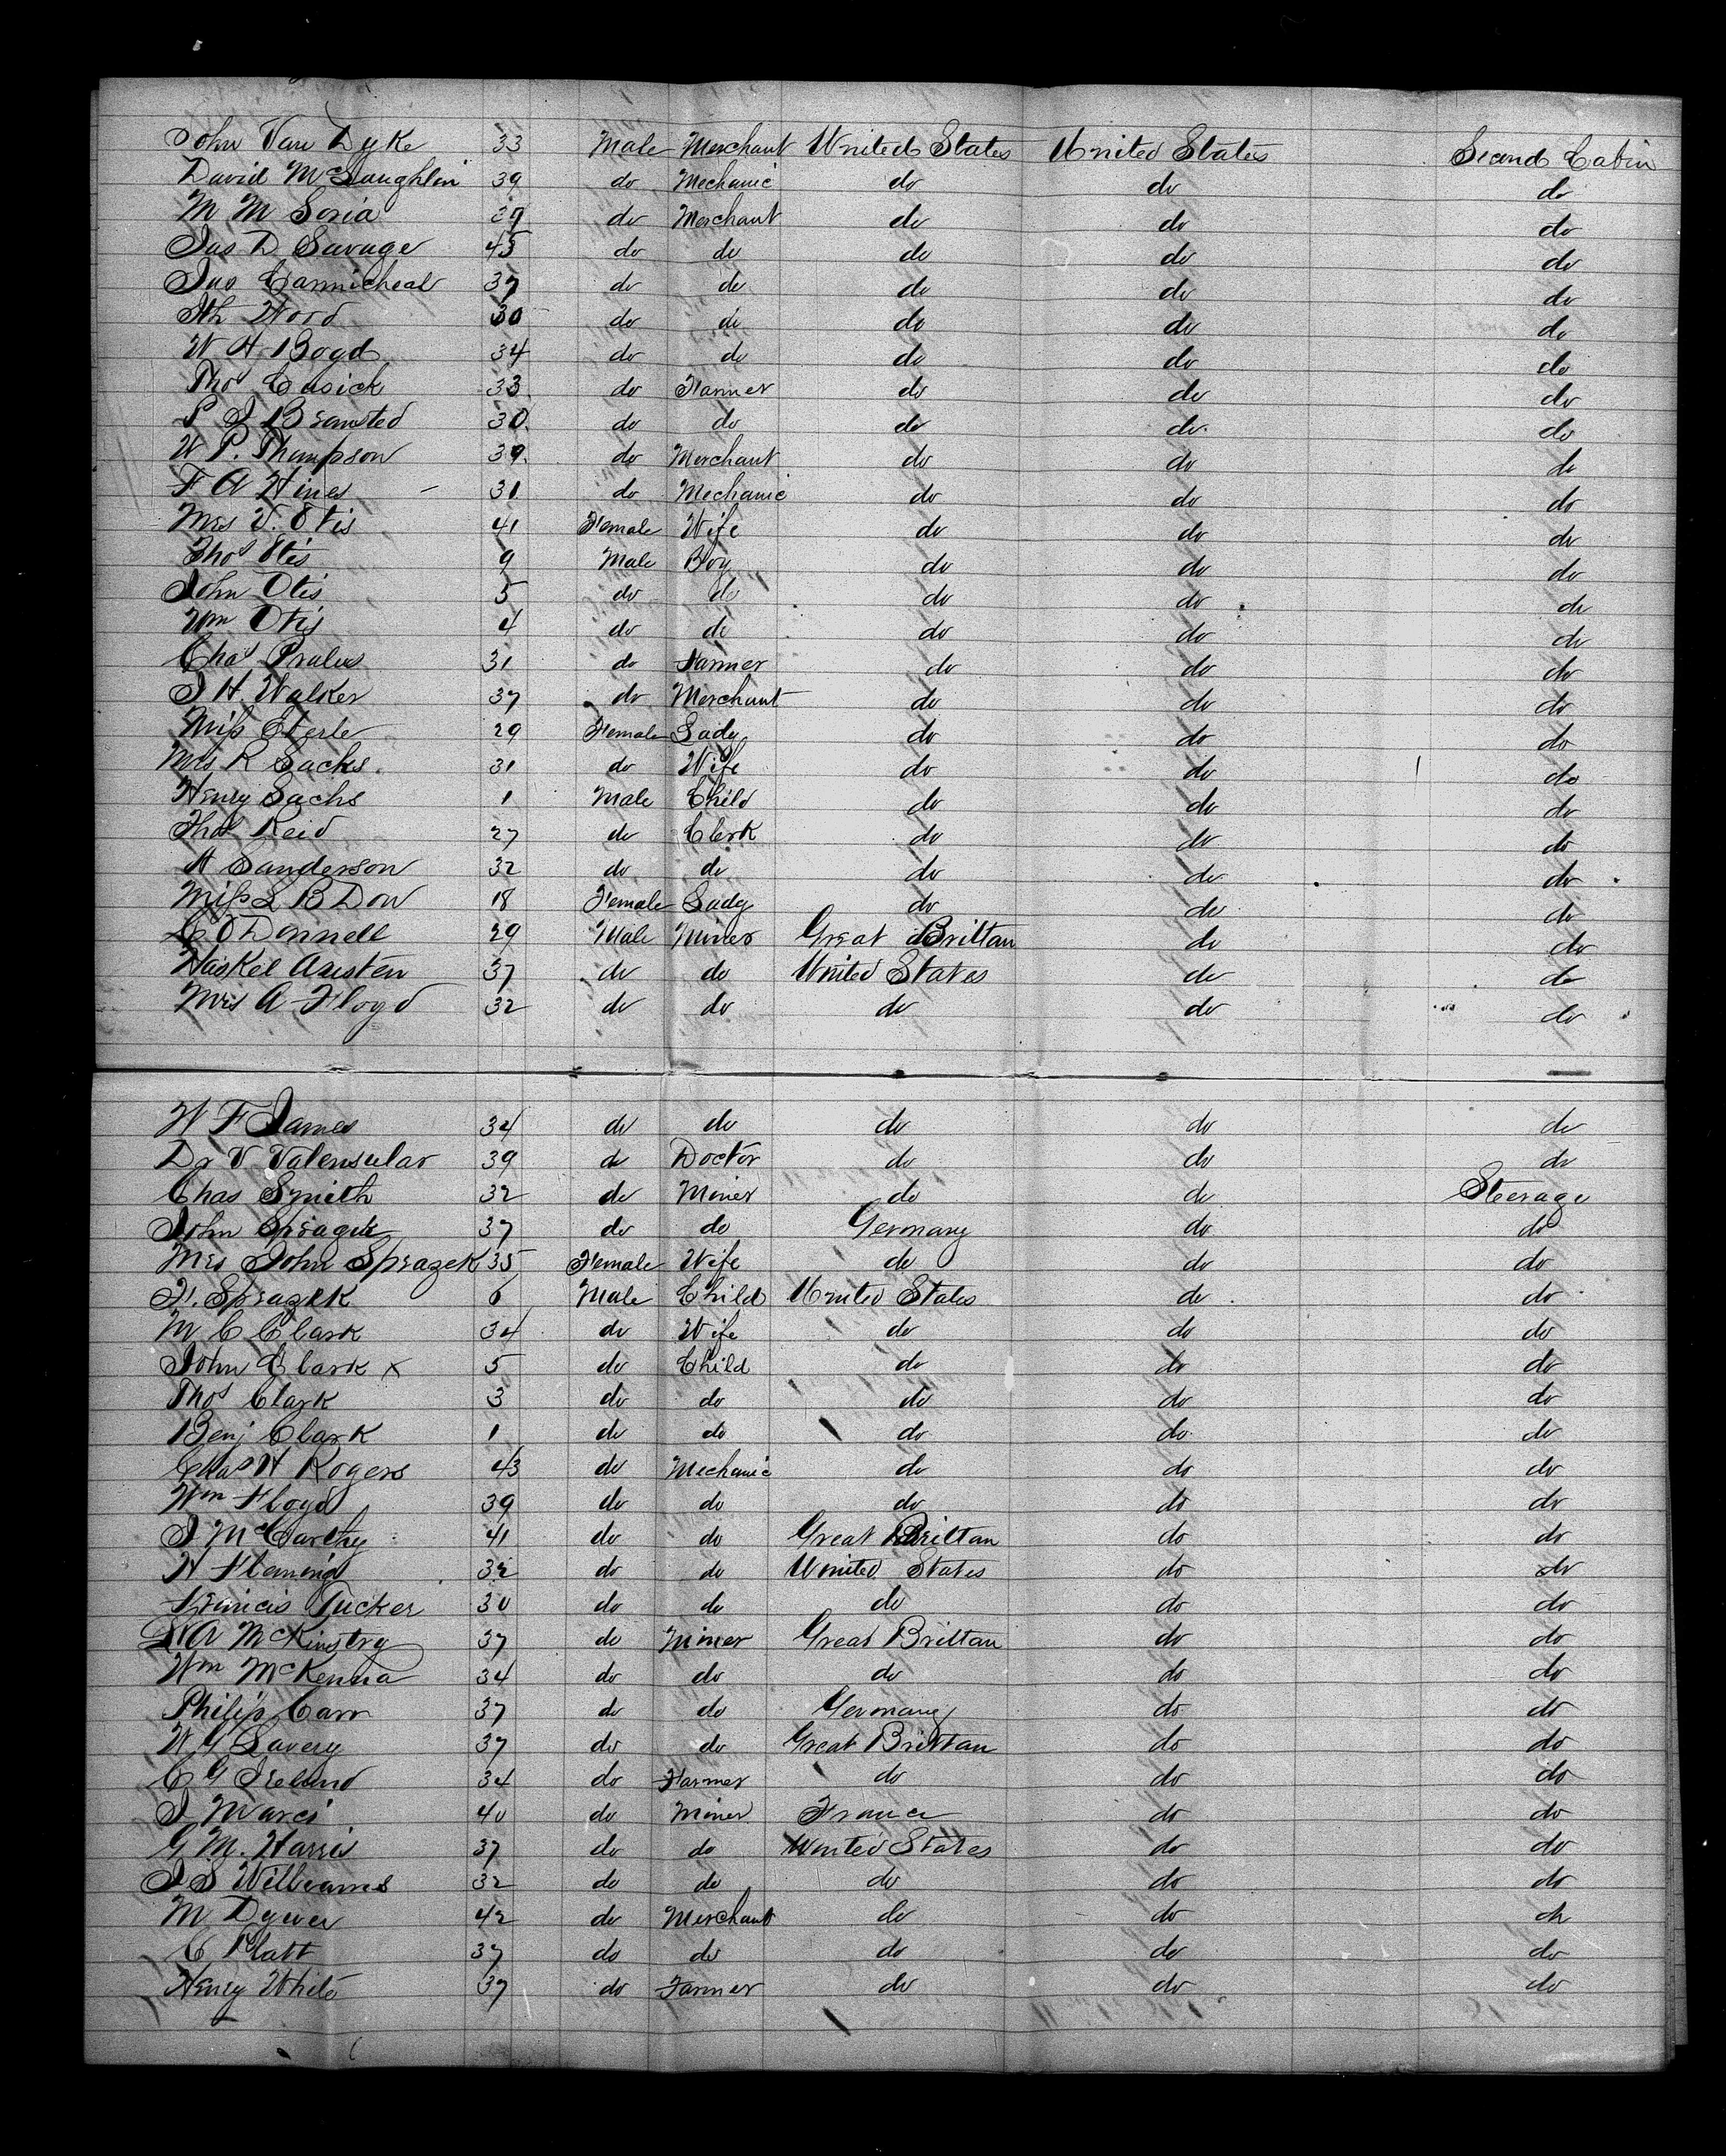 John Van Dyke 33 Male Merchant United States United States Second Cabin
David McLaughlin 39 do Mechanic do do do
M M Soria 39 do Merchant do do do
Jas D Savage 45 do do do do do
Jas Carmicheal 37 do do do do do
Wood 30 do do do do do
W H Boyd 34 do do do do do
Thos Cusick 33 do Farmer do do do
P J Bramsted 30 do do do do do
W P. Thompson 39 do Merchant do do do
F A Hines 31 do Mechanic do do do
Mrs V. Otis 41 Female Wife do do do
Thos Otis 9 Male Boy do do do
John Otis 5 do do do do do
Wm Otis 4 do do do do do
Chas Prales 31 do Farmer do do do
J H Walker 37 do Merchant do do do
Miss Eterle 29 Female Lady do do do
Mrs R Sachs 31 do Wife do do do
Henry Sachs 1 Male Child do do do
Thos Reid 27 do Clerk do do do
A Sanderson 32 do do do do do
Miss L B Dow 18 Female Lady do do do
C O'Donnell 29 Male Miner Great Brittan do do
Haskel Austen 37 do do United States do do
Mrs A Floyd 32 do do do do do
W F James 34 do do do do do
Dr V Valensular 39 do Doctor do do do
Chas Smith 32 do Miner do do Steerage
John Sprague 37 do do Germany do do
Mrs John Sprazek 35 Female Wife do do do
F. Sprazek 6 Male Child United States do do
M C Clark 34 do Wife do do do
John Clark x 5 do Child do do do
Thos Clark 3 do do do do do
Benj Clark 1 do do do do do
Chas H Rogers 43 do Mechanic do do do
Wm Floyd 39 do do do do do
J McCarthy 41 do do Great Brittan do do
H Fleming 32 do do United States do do
Francis Tucker 30 do do do do do
A McKinstry 37 do Miner Great Brittan do do
Wm McKenna 34 do do do do do
Philip Carr 37 do do Germany do do
W G Lavery 37 do do Great Brittan do do
C G Ireland 34 do Farmer do do do
J Marci 40 do Miner France do do
G M. Harris 37 do do United States do do
J S Williams 32 do do do do do
M Dywer 42 do Merchant do do do
C Platt 37 do do do do do
Henry White 37 do Farmer do do do